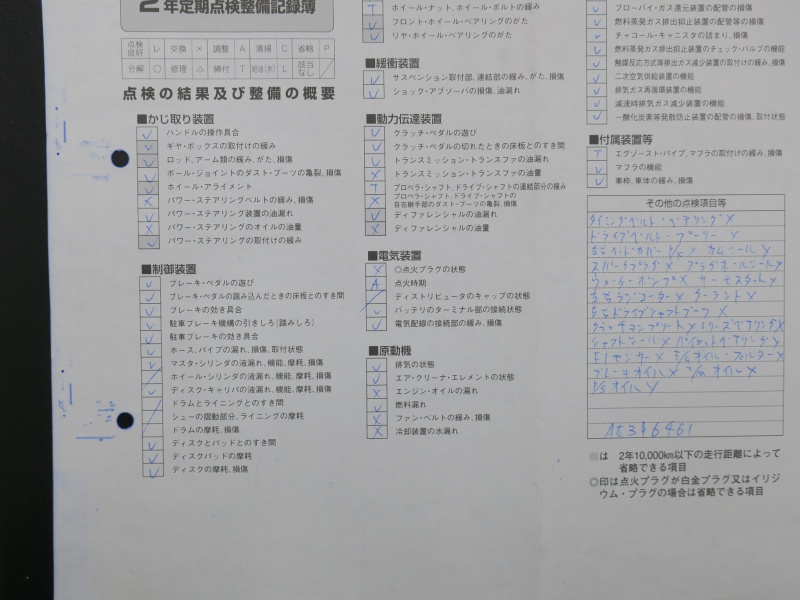 2年定期点検整備記録簿
点検良好 レ 交換 × 調整 A 清掃 C 省略 P
分解 ○ 修理 △ 締付 T 給油(水) L 該当なし ／
点検の結果及び整備の概要
■かじ取り装置
レ ハンドルの操作具合
レ ギヤ・ボックスの取付けの緩み
レ ロッド、アーム類の緩み、がた、損傷
レ ボール・ジョイントのダスト・ブーツの亀裂、損傷
レ ホイール・アライメント
× パワー・ステアリングベルトの緩み、損傷
レ パワー・ステアリング装置の油漏れ
× パワー・ステアリングのオイルの油量
レ パワー・ステアリングの取付けの緩み
■制御装置
レ ブレーキ・ペダルの遊び
レ ブレーキ・ペダルの踏み込んだときの床板とのすき間
レ ブレーキの効き具合
レ 駐車ブレーキ機構の引きしろ(踏みしろ)
レ 駐車ブレーキの効き具合
レ ホース、パイプの漏れ、損傷、取付状態
レ マスタ・シリンダの液漏れ、機能、摩耗、損傷
／ ホイール・シリンダの液漏れ、機能、摩耗、損傷
レ ディスク・キャリパの液漏れ、機能、摩耗、損傷
／ ドラムとライニングとのすき間
／ シューの摺動部分、ライニングの摩耗
／ ドラムの摩耗、損傷
レ ディスクとパッドとのすき間
レ ディスクパッドの摩耗
レ ディスクの摩耗、損傷
T ホイール・ナット、ホイール・ボルトの緩み
レ フロント・ホイール・ベアリングのがた
レ リヤ・ホイール・ベアリングのがた
■緩衝装置
レ サスペンション取付部、連結部の緩み、がた、損傷
レ ショック・アブソーバの損傷、油漏れ
■動力伝達装置
レ クラッチ・ペダルの遊び
レ クラッチ・ペダルの切れたときの床板とのすき間
レ トランスミッション・トランスファの油漏れ
× トランスミッション・トランスファの油量
T プロペラ・シャフト、ドライブ・シャフトの連結部分の緩み
× プロペラ・シャフト、ドライブ・シャフトの
自在継手部のダスト・ブーツの亀裂、損傷
レ ディファレンシャルの油漏れ
× ディファレンシャルの油量
■電気装置
× ◎点火プラグの状態
A 点火時期
／ ディストリビュータのキャップの状態
レ バッテリのターミナル部の接続状態
レ 電気配線の接続部の緩み、損傷
■原動機
レ 排気の状態
レ エア・クリーナ・エレメントの状態
× エンジン・オイルの漏れ
レ 燃料漏れ
× ファン・ベルトの緩み、損傷
× 冷却装置の水漏れ
レ ブローバイ・ガス還元装置の配管の損傷
レ 燃料蒸発ガス排出抑止装置の配管等の損傷
レ チャコール・キャニスタの詰まり、損傷
レ 燃料蒸発ガス排出抑止装置のチェック・バルブの機能
レ 触媒反応方式等排出ガス減少装置の取付けの緩み、損傷
レ 二次空気供給装置の機能
レ 排気ガス再循環装置の機能
レ 減速時排気ガス減少装置の機能
レ 一酸化炭素等発散防止装置の配管の損傷、取付状態
■付属装置等
T エグゾースト・パイプ、マフラの取付けの緩み、損傷
レ マフラの機能
レ 車枠、車体の緩み、損傷
その他の点検項目等
タイミングベルト・ベアリング×
ドライブベルト・プーリー ×
左右ヘッドカバーP/K× カムシール×
スパークプラグ× プラグホールシール×
ウォーターポンプ× サーモスタート×
左右ラジエーター× クーラント×
左右ドライブシャフトブーツ×
クラッチコンプリート× レリーズベアリング×
シャフトシール× パイロットベアリング×
オイル・フィルター×
ブレーキオイル× オイル×
P/S オイル×
AE346461
は 2年10,000km以下の走行距離によって
省略できる項目
◎印は点火プラグが白金プラグ又はイリジ
ウム・プラグの場合は省略できる項目